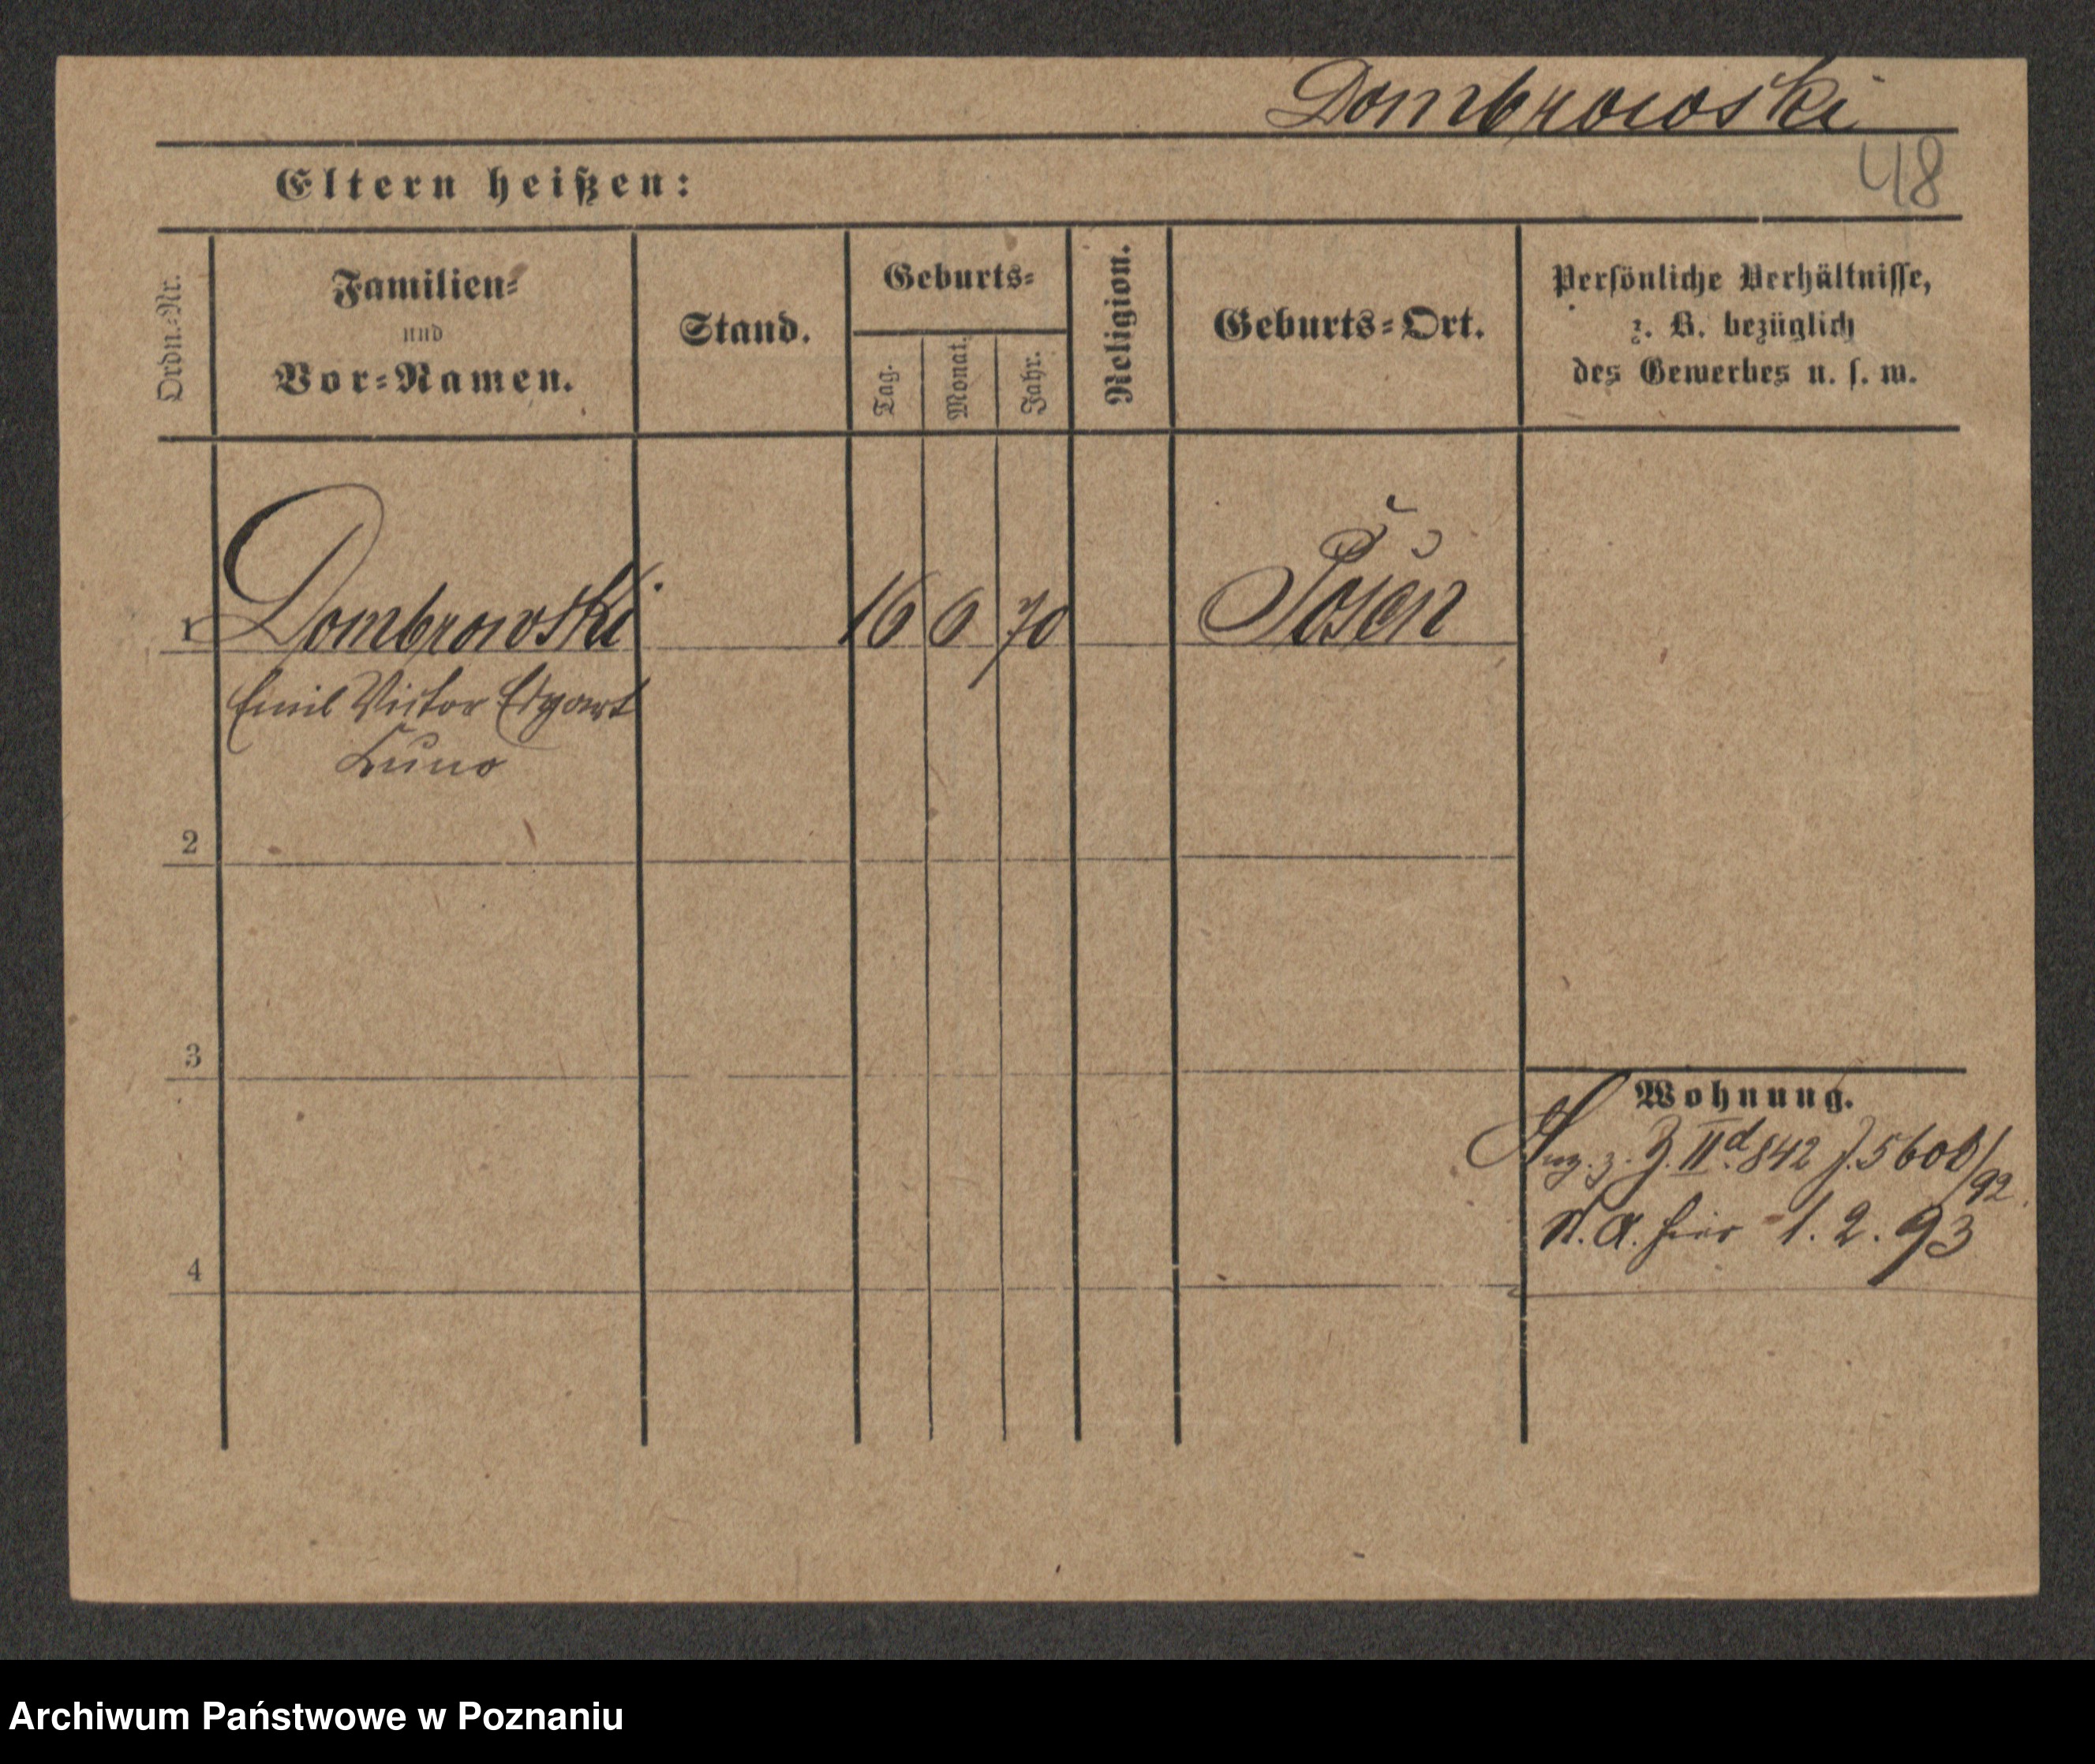 Dombrowski
48
Eltern heißen:
Ordn.=Nr.
Familien=
und
Vor=Namen.
Stand.
Geburts=
Tag.
Monat.
Jahr.
Religion.
Geburts=Ort.
Persönliche Verhältnisse,
z. B. bezüglich
des Gewerbes u. s. w.
1 Dombrowski 16 6 70 Posen
Emil Victor
Kuno
2
3
4
Wohnung.
z. J. IId. 842 J. 5600/92
N. A. hier 1. 2. 93
Archiwum Państwowe w Poznaniu